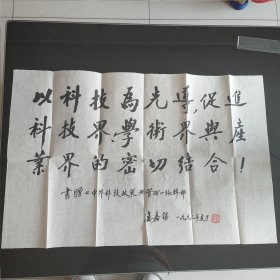 以科技為先導，促進
科技界、學術界與產
業界的密切結合！
書贈《中外科技政策与管理》编辑部
一九九三年